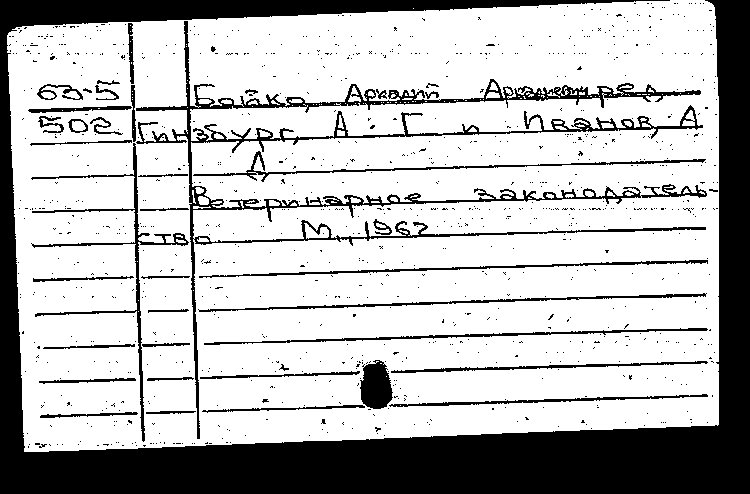 63-5 Бойко, Аркадий Аркадиевич, ред.,
502 Гинзбург, А. Г. и Иванов, А.
Д.
Ветеринарное законодатель-
ство М., 1962